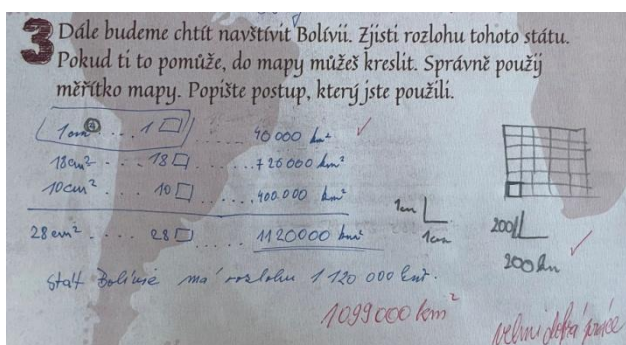 3 Dále budeme chtít navštívit Bolívii. Zjisti rozlohu tohoto státu.
Pokud ti to pomůže, do mapy můžeš kreslit. Správně použij
měřítko mapy. Popište postup, který jste použili.
1cm² .... 1 □ ........ 40 000 km² ✓
18cm² ... 18 □ ........ 720 000 km²
10cm² ... 10 □ ....... 400.000 km²
28 cm² .... 28 □ ..... 1120000 km²
1cm
1cm
200
200km ✓
Stát Bolívie má rozlohu 1 120 000 km².
1099000 km²
velmi dobrá práce